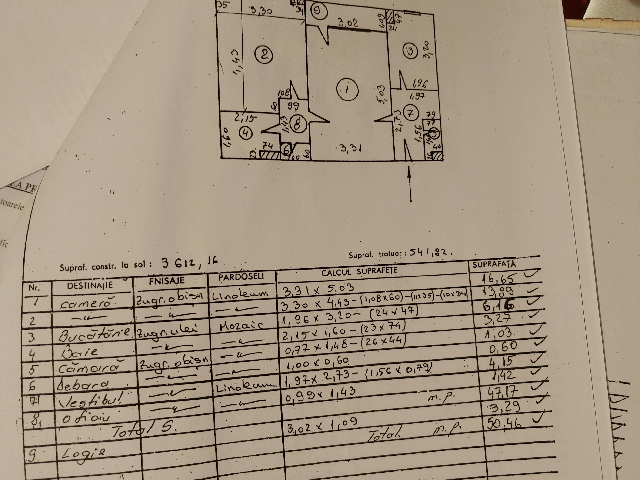 35
3,30
9
3,02
409
47
4,43
2
1
3
3,20
5,03
1,96
1,97
108
99
2,15
1,60
4
1,43
8
2,73
7
1,56
79
77
74
6
60
3,31
A PF
Supraf. constr. la sol : 3612,16
Supraf. traluc: 541,82
Nr. DESTINAȚIE FNISAJE PARDOSELI CALCUL SUPRAFEȚE SUPRAFAȚĂ
1 cameră zugr. obișn Linoleum 3,31 x 5,03 16,65
2 -"- -"- -"- 3.30 x 4,43-(1,08x60)-(11x35)-(10x34) 13,89
3 Bucătărie zugr. ulei Mozaic 1,96 x 3,20-(24x47) 6,16
4 Baie -"- -"- 2,15 x 1,60-(23x74) 3,27
5 Cămară zugr. obișn -"- 0,77 x 1,48-(26x44) 1,03
6 Debara -"- -"- 1,00 x 0,60 0,60
7 Vestibul -"- Linoleum 1,97 x 2,73-(1,56x0,79) 4,15
8 oficiu -"- -"- 0,99 x 1,43 1,42
Total S. m.p. 47,17
9 Logie 3,02 x 1,09 3,29
Total m.p. 50,46